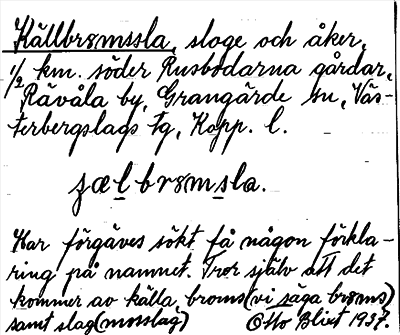 Källbromssla, sloge och åker,
1/2 km. söder Rusbodarna gårdar,
Rävåla by, Grangärde sn, Väs-
terbergslags tg, Kopp. l.
jælbromsla.
Har förgäves sökt få någon förkla-
ring på namnet. Tror själv att det
kommer av källa, broms (vi säga brøms)
samt slag (mosslag) Otto Blixt 1937.